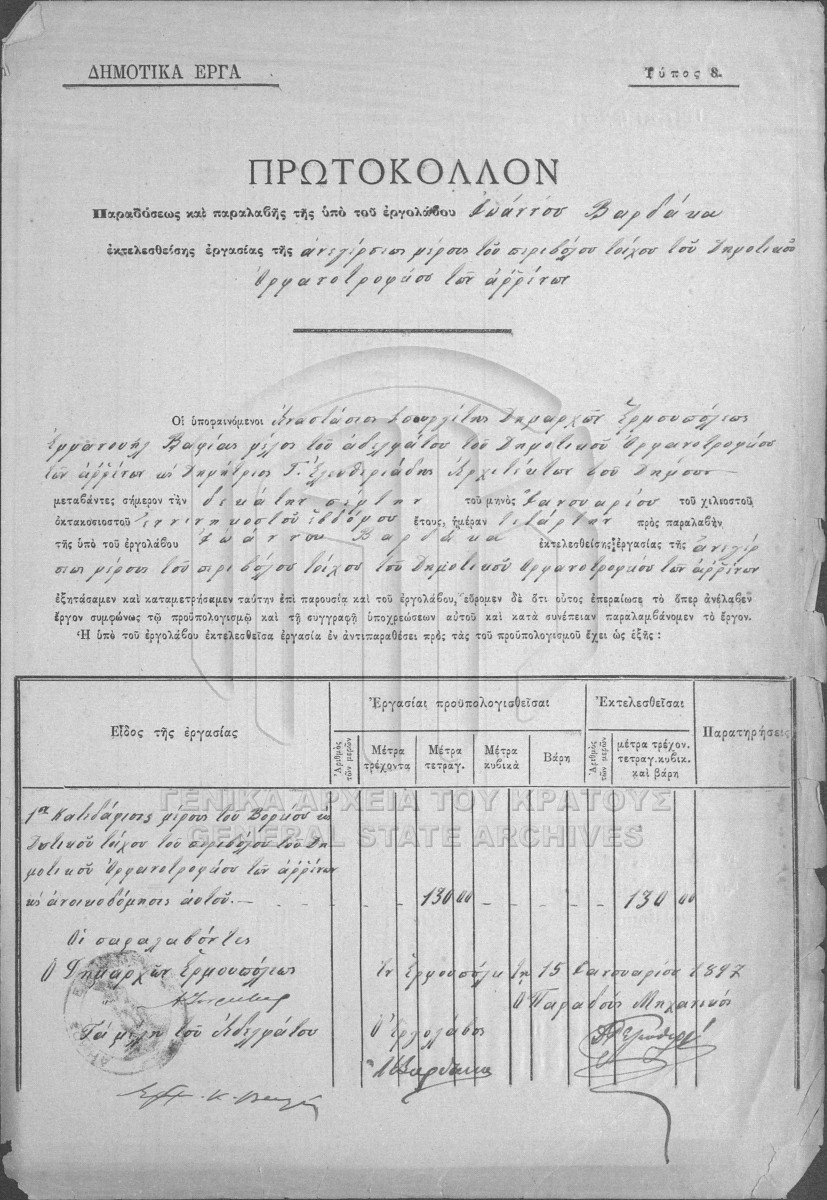 ΔΗΜΟΤΙΚΑ ΕΡΓΑ
Τύπος 8.
ΠΡΩΤΟΚΟΛΛΟΝ
Παραδόσεως καὶ παραλαβῆς τῆς ὑπὸ τοῦ ἐργολάβου Ἰωάννου Βαρδάκα
ἐκτελεσθείσης ἐργασίας τῆς ἀνεγέρσεως μέρους τοῦ περιβόλου τοίχου τοῦ Δημοτικοῦ
Ὀρφανοτροφείου τῶν ἀῤῥένων
Οἱ ὑποφαινόμενοι Ἀναστάσιος Δημαρχῶν Ἑρμουπόλεως
Ἐμμανουὴλ Βαφίας μέλος τοῦ ἀδελφάτου τοῦ Δημοτικοῦ Ὀρφανοτροφείου
τῶν ἀῤῥένων κ Δημήτριος Γ. Ἐλευθεριάδης Ἀρχιτέκτων τοῦ Δήμου
μεταβάντες σήμερον τὴν δεκάτην πέμπτην τοῦ μηνὸς Ἰανουαρίου τοῦ χιλιοστοῦ
ὀκτακοσιοστοῦ ἐννενηκοστοῦ ἑβδόμου ἔτους, ἡμέραν τετάρτην πρὸς παραλαβὴν
τῆς ὑπὸ τοῦ ἐργολάβου Ἰωάννου Βαρδάκα ἐκτελεσθείσης ἐργασίας τῆς ἀνεγέρ
σεως μέρους τοῦ περιβόλου τοίχου τοῦ Δημοτικοῦ Ὀρφανοτροφείου τῶν ἀῤῥένων
ἐξητάσαμεν καὶ καταμετρήσαμεν ταύτην ἐπὶ παρουσίᾳ καὶ τοῦ ἐργολάβου, εὕρομεν δὲ ὅτι οὗτος ἐπεραίωσε τὸ ὅπερ ἀνέλαβεν
ἔργον συμφώνως τῷ προϋπολογισμῷ καὶ τῇ συγγραφῇ ὑποχρεώσεων αὐτοῦ καὶ κατὰ συνέπειαν παραλαμβάνομεν τὸ ἔργον.
Ἡ ὑπὸ τοῦ ἐργολάβου ἐκτελεσθεῖσα ἐργασία ἐν ἀντιπαραθέσει πρὸς τὰς τοῦ προϋπολογισμοῦ ἔχει ὡς ἑξῆς :
Εἶδος τῆς ἐργασίας
Ἐργασίαι προϋπολογισθεῖσαι
Ἐκτελεσθεῖσαι
Παρατηρήσεις
Ἀριθμὸς τῶν μερῶν
Μέτρα τρέχοντα
Μέτρα τετραγ.
Μέτρα κυβικὰ
Βάρη
Ἀριθμὸς τῶν μερῶν
μέτρα τρέχον. τετραγ. κυβικ. καὶ βάρη
ΓΕΝΙΚΑ ΑΡΧΕΙΑ ΤΟΥ ΚΡΑΤΟΥΣ
GENERAL STATE ARCHIVES
1ον Κατεδάφισις μέρους τοῦ Βορείου κ
Δυτικοῦ τοίχου τοῦ περιβόλου τοῦ Δη
μοτικοῦ Ὀρφανοτροφείου τῶν ἀῤῥένων
κ ἀνοικοδόμησις αὐτοῦ. 130 00 130 00
Οἱ παραλαβόντες
Ὁ Δημαρχῶν Ἑρμουπόλεως
Ἐν Ἑρμουπόλει τῇ 15 Ἰανουαρίου 1897
Ὁ Παραδοὺς Μηχανικὸς
Τὰ μέλη τοῦ Ἀδελφάτου
Ὁ Ἐργολάβος
Ι Βαρδάκας